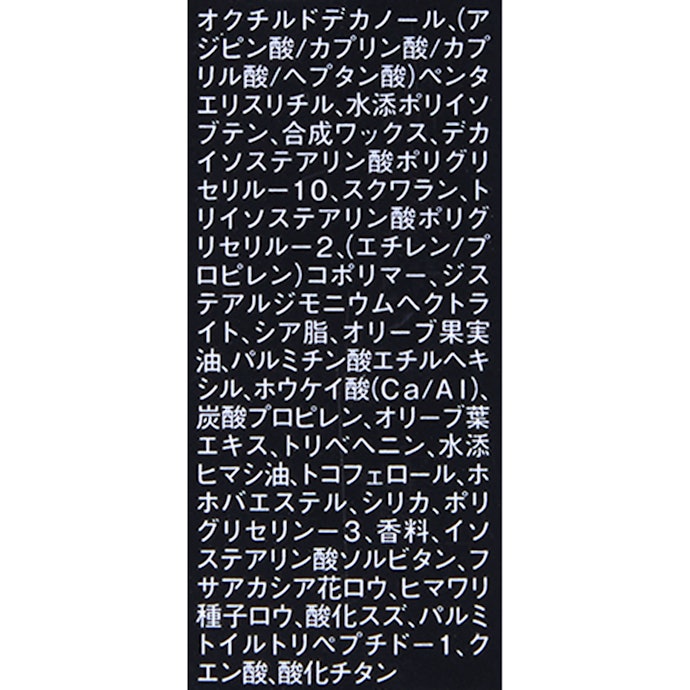 オクチルドデカノール、(ア
ジピン酸/カプリン酸/カプ
リル酸/ヘプタン酸)ペンタ
エリスリチル、水添ポリイソ
ブテン、合成ワックス、デカ
イソステアリン酸ポリグリ
セリルー10、スクワラン、ト
リイソステアリン酸ポリグ
リセリルー2、(エチレン/プ
ロピレン)コポリマー、ジス
テアルジモニウムヘクトラ
イト、シア脂、オリーブ果実
油、パルミチン酸エチルヘキ
シル、ホウケイ酸(Ca/Al)、
炭酸プロピレン、オリーブ葉
エキス、トリベヘニン、水添
ヒマシ油、トコフェロール、ホ
ホバエステル、シリカ、ポリ
グリセリン－3、香料、イソ
ステアリン酸ソルビタン、フ
サアカシア花ロウ、ヒマワリ
種子ロウ、酸化スズ、パルミ
トイルトリペプチドー1、ク
エン酸、酸化チタン